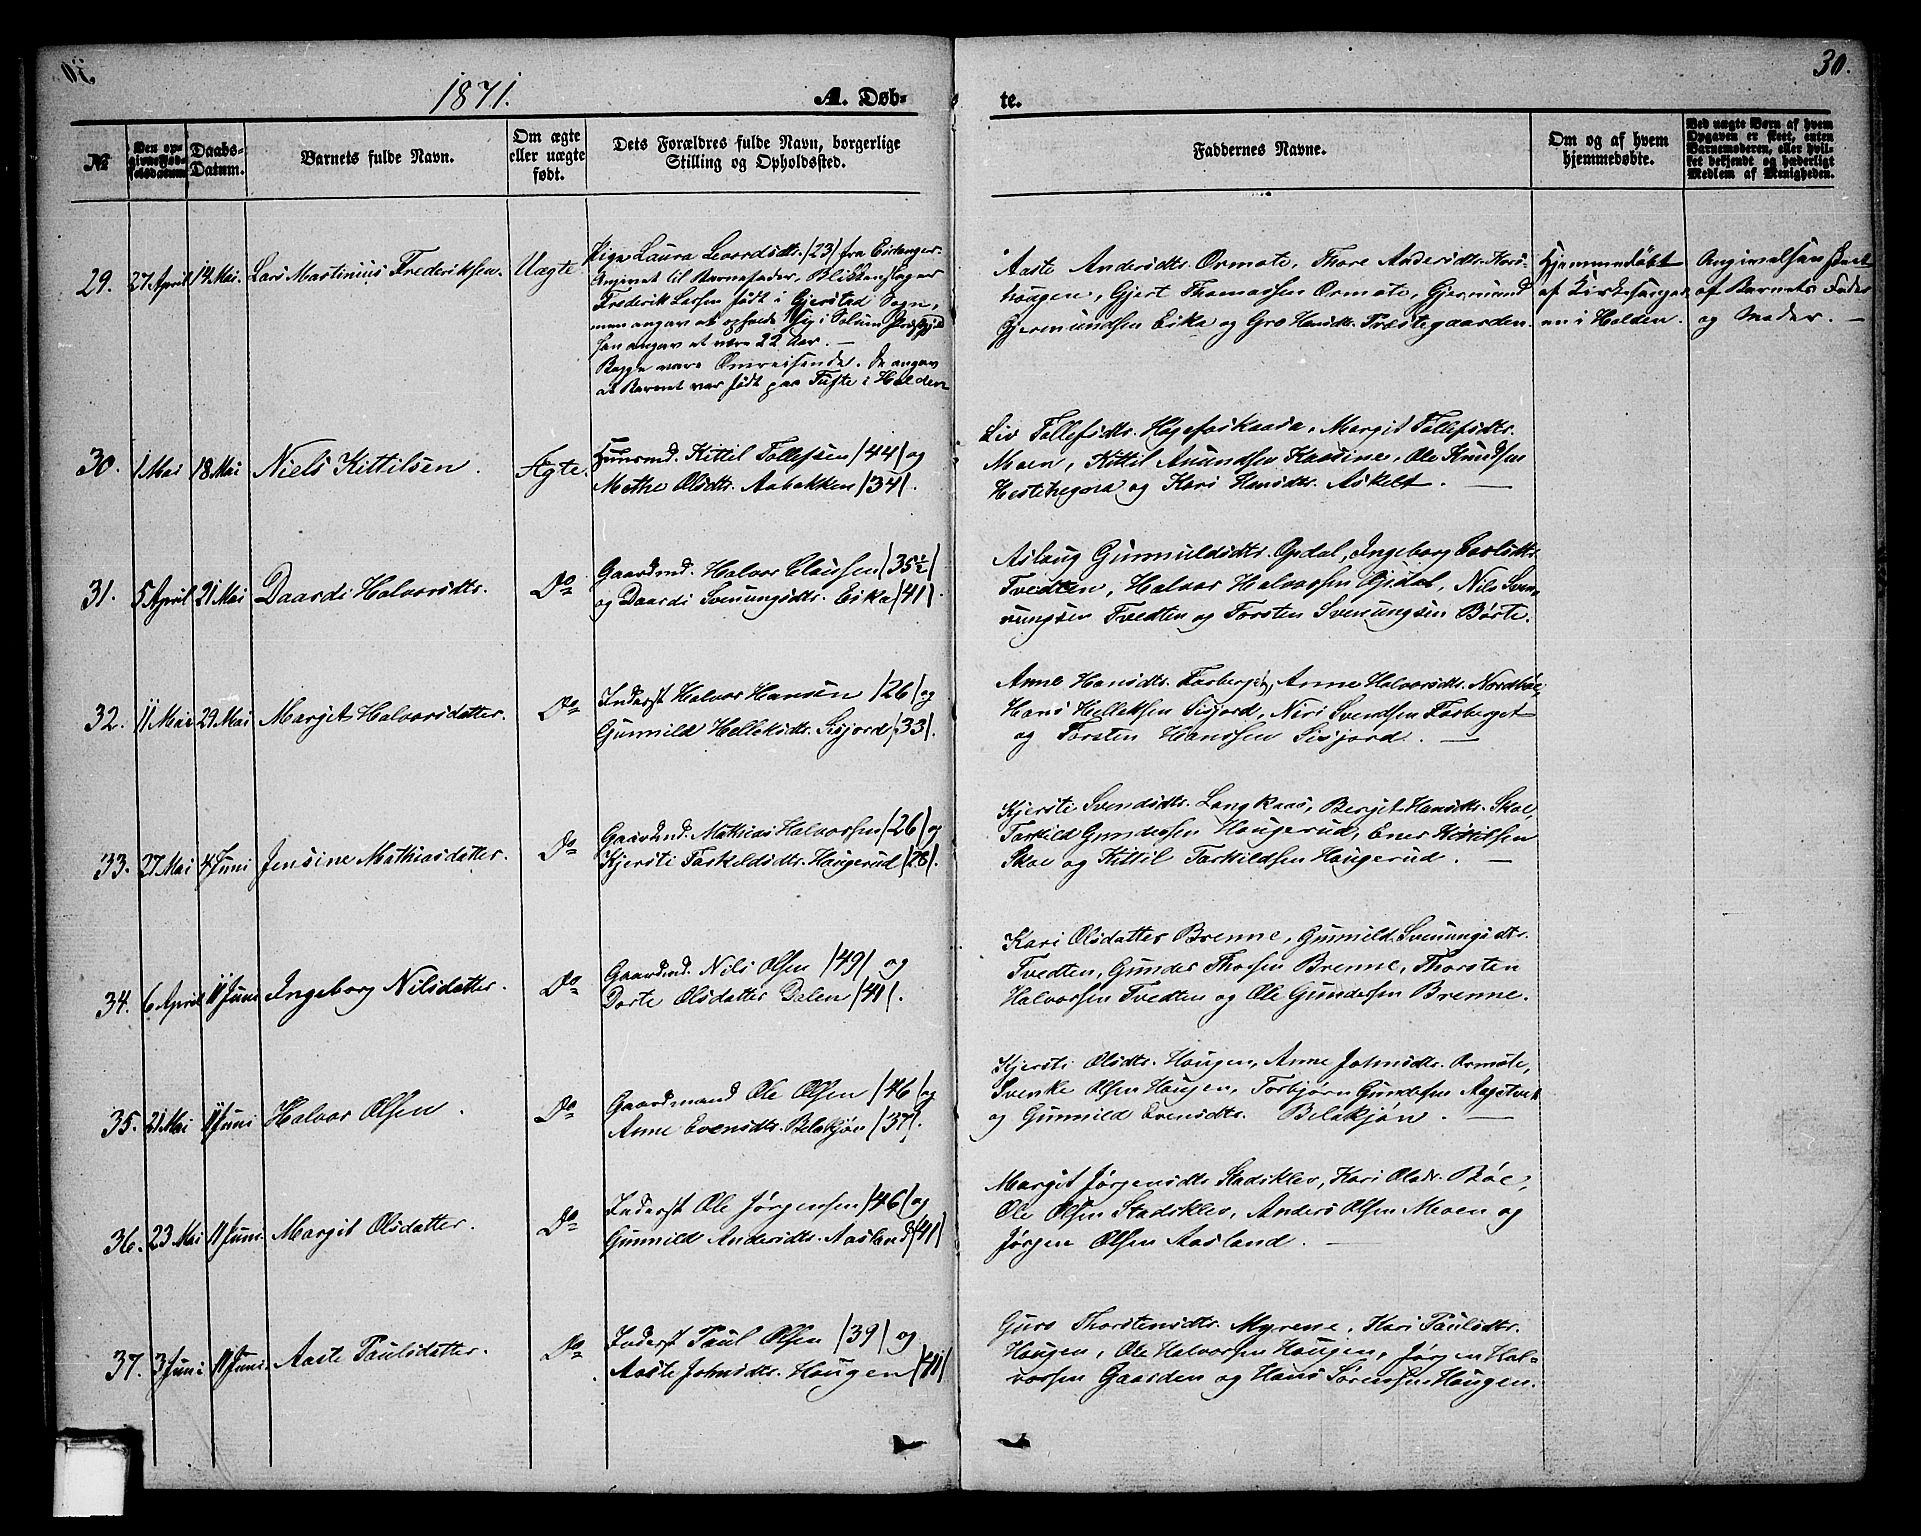 1871.
A. Døb-
te.
30.
No
Den op-
givne Fød-
selsdatum
Daabs-
Datum.
Barnets fulde Navn.
Om ægte
eller uægte
født.
Dets Forældres fulde Navn, borgerlige
Stilling og Opholdssted.
Faddernes Navne.
Om og af hvem
hjemmedøbte.
Ved uægte Børn af hvem
Opgaven er skeet, enten
Barnemoderen, eller hvil-
ket bekjendt og hæderligt
Medlem af Menigheden.
29. 27 April 14 Mai. Lars Martinius Frederiksen. Uægte
Pige Laura Leordsdtr. /23/ fra Eidanger.
Angivet til Barnefader, Blikkenslager
Frederik Larsen født i Gjerstad Sogn,
men angav at opholde sig i Solum
han angav at være 22 Aar. —
Begge vare Omreisende. De angav
at Barnet var født paa Tufte i Holden
Aaste Andersdtr. Ormote, Thore Andersdtr.
haugen, Gjert Thomassen Ormote, Gjermund
Gjermundsen Eika og Gro Hansdtr. Præstegaarden.
Hjemmedøbt
af Kirkesanger
en i Holden.
Angivelsen skeet
af Barnets Fader
og Moder. —
30. 1 Mai 18 Mai Niels Kittilsen. Ægte.
Huusmd. Kittil Tollefsen /44/ og
Methe Olsdtr. Aabakken /34/.
Liv Tollefsdtr. Høgefoskaasa, Margit Tollefsdtr.
Moen, Kittil Amundsen Kaasine, Ole Knudsen
Hestehegna og Kari Hansdtr. Askelt. —
31. 5 April 21 Mai Daardi Halvorsdtr. Do
Gaardmd. Halvor Clausen /35½/
og Daardi Svenungsdtr. Eika /41/.
Aslaug Gunnuldsdtr. Opdal, Ingeborg
Tvedten, Halvor Halvorsen Opdal, Nils Sven-
nungsen Tvedten og Torsten Svenungsen Børte.
32. 11 Mai 29 Mai Margit Halvorsdatter. Do
Inderst Halvor Hansen /26/ og
Gunnild Helleksdtr. Sisjord /33/.
Anne Hansdtr. Forberget, Anne Halvorsdtr. Nordbøe
Hans Helleksen Sisjord, Niri Svendsen Forberget
og Torsten Hanssen Sisjord. —
33. 27 Mai 4 Juni Jensine Mathiasdatter. Do
Gaardmd. Mathias Halvorsen /26/ og
Kjersti Tarkeldsdtr. Haugerud /28/.
Kjersti Svendsdtr. Langkaas, Berget Hansdtr. Skoe,
Tarkild Gundersen Haugerud, Ener Kittilsen
Skoe og Kittil Tarkildsen Haugerud. —
34. 6 April 11 Juni Ingeborg Nilsdatter. Do
Gaardmd. Nils Olsen /49/ og
Dorte Olsdatter Dalen /41/.
Kari Olsdatter Brenne, Gunnild Svenungsdtr.
Tvedten, Gunder Thorsen Brenne, Thorsten
Halvorsen Tvedten og Ole Gundersen Brenne.
35. 21 Mai 11 Juni Halvor Olsen. Do
Gaardmand Ole Olsen /46/ og
Anne Evensdtr. Belakjøn /37/.
Kjersti Olsdtr. Haugen, Anne Johnsdtr. Ormote,
Svenke Olsen Haugen, Torbjørn Gundersen
og Gunnild Evensdtr. Belakjøn. —
36. 23 Mai 11 Juni. Margit Olsdatter. Do
Inderst Ole Jørgensen /46/ og
Gunnild Andersdtr. Aasland /41/
Margit Jørgensdtr. Stadsklev, Kari Olsdr. Bøe,
Ole Olsen Stadsklev, Anders Olsen Moen og
Jørgen Olsen Aasland. —
37. 3 Juni 11 Juni. Aaste Paulsdatter. Do
Inderst Paul Olsen /39/ og
Aaste Johnsdtr. Haugen /41/
Guro Thorstensdtr. Myrene, Kari Paulsdtr.
Haugen, Ole Halvorsen Haugen, Jørgen Hal-
vorsen Gaarden og Hans Sørensen Haugen.